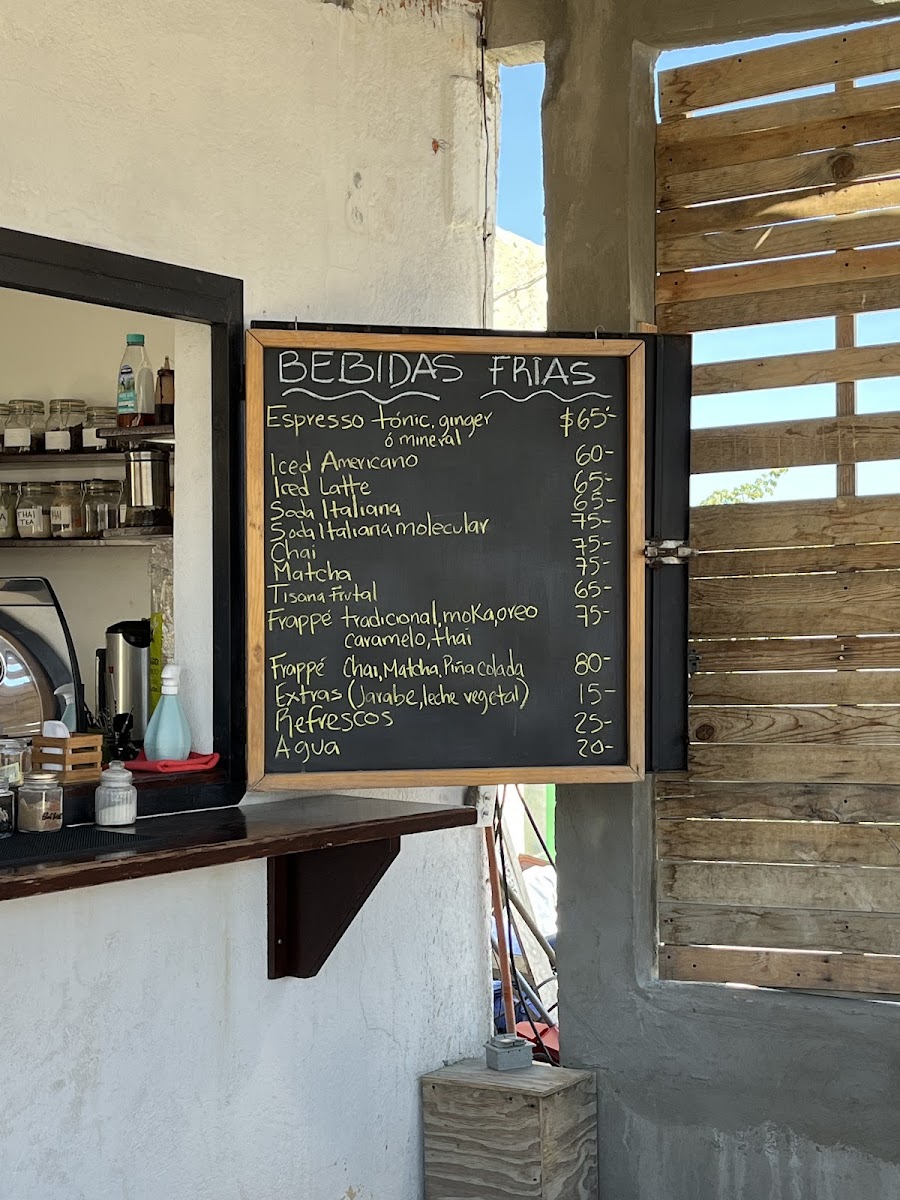 BEBIDAS FRÍAS
Espresso tónic, ginger $65-
ó mineral
Iced Americano 60-
Iced Latte 65-
Soda Italiana 65-
Soda Italiana molecular 75-
Chai 75-
Matcha 75-
Tisana Frutal 65-
Frappé tradicional, moka, oreo 75-
caramelo, thai
Frappé Chai, Matcha, Piña Colada 80-
Extras (Jarabe, leche vegetal) 15-
Refrescos 25-
Agua 20-
THAI
TEA